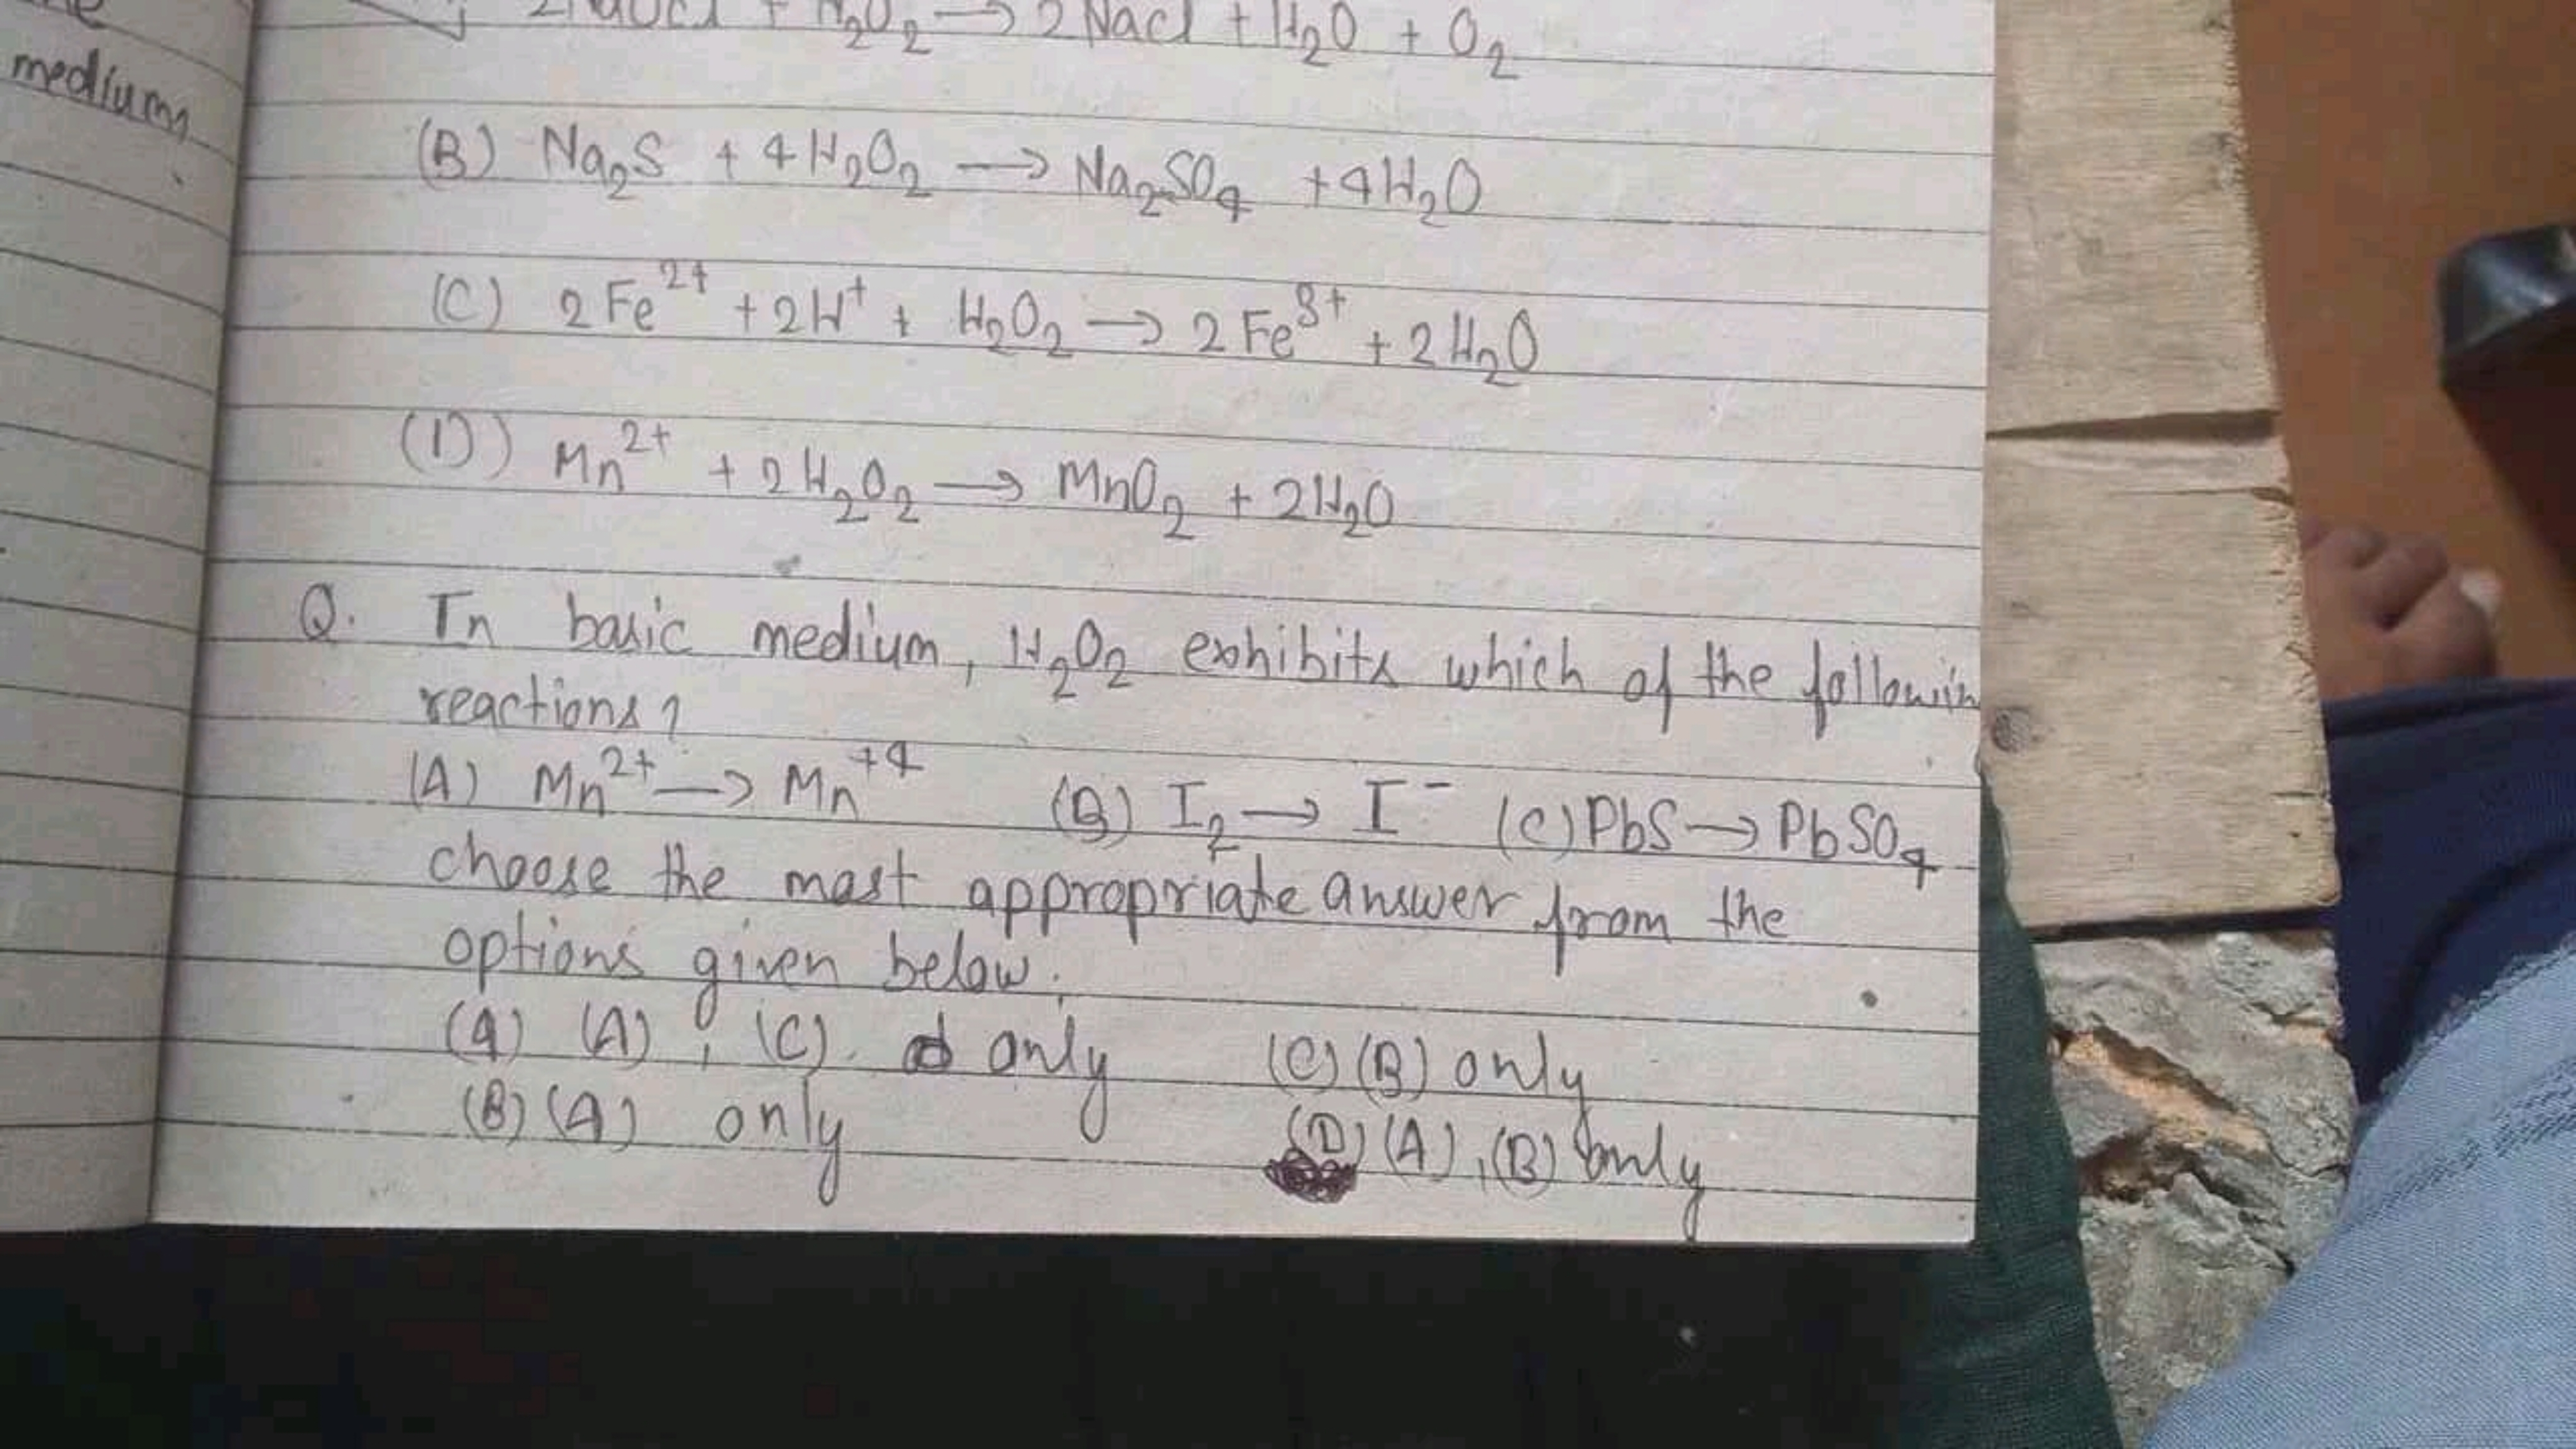 medium,
2NaOCl + H₂O₂ → 2 Nacl + H₂O + O₂
(B) Na₂S + 4H₂O₂ → Na₂SO₄ + 4H₂O
(C) 2Fe²⁺ + 2H⁺ + H₂O₂ → 2Fe³⁺ + 2H₂O
(D) Mn²⁺ + 2H₂O₂ → MnO₂ + 2H₂O
Q. In basic medium, H₂O₂ exhibits which of the followin
reactions?
(A) Mn²⁺ → Mn⁺⁴ (B) I₂ → I⁻ (C) PbS → PbSO₄
choose the most appropriate answer from the
options given below.
(A) (A), (C) only (C) (B) only
(B) (A) only (D) (A), (B) only